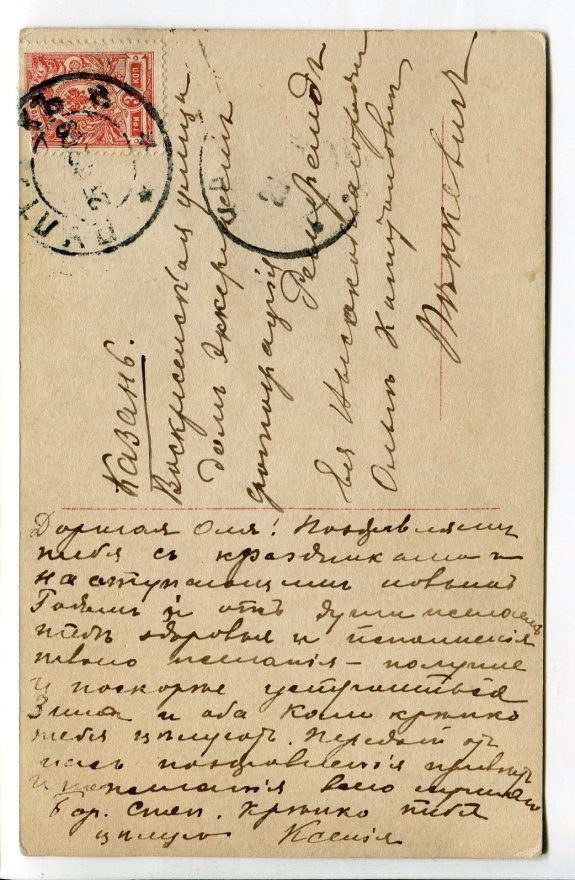 Казань.
Воскресенская улица
домъ
фотографія
Рембрандъ
Ея Высокоблагородію
Ольгѣ
Дорогая Оля! Поздравляемъ
тебя съ праздниками и
наступающимъ новымъ
Годомъ и отъ души желаемъ
тебѣ здоровья и исполненія
твоего желанія – получше
и поскорѣе устроиться
Зина и оба Коли крѣпко
тебя цѣлуютъ. Передай отъ
насъ поздравленія привѣтъ
и пожеланія всего лучшаго
Бор. Степ. Крѣпко тебя
цѣлую Ксенія
3 КОП
ТРИ КОП